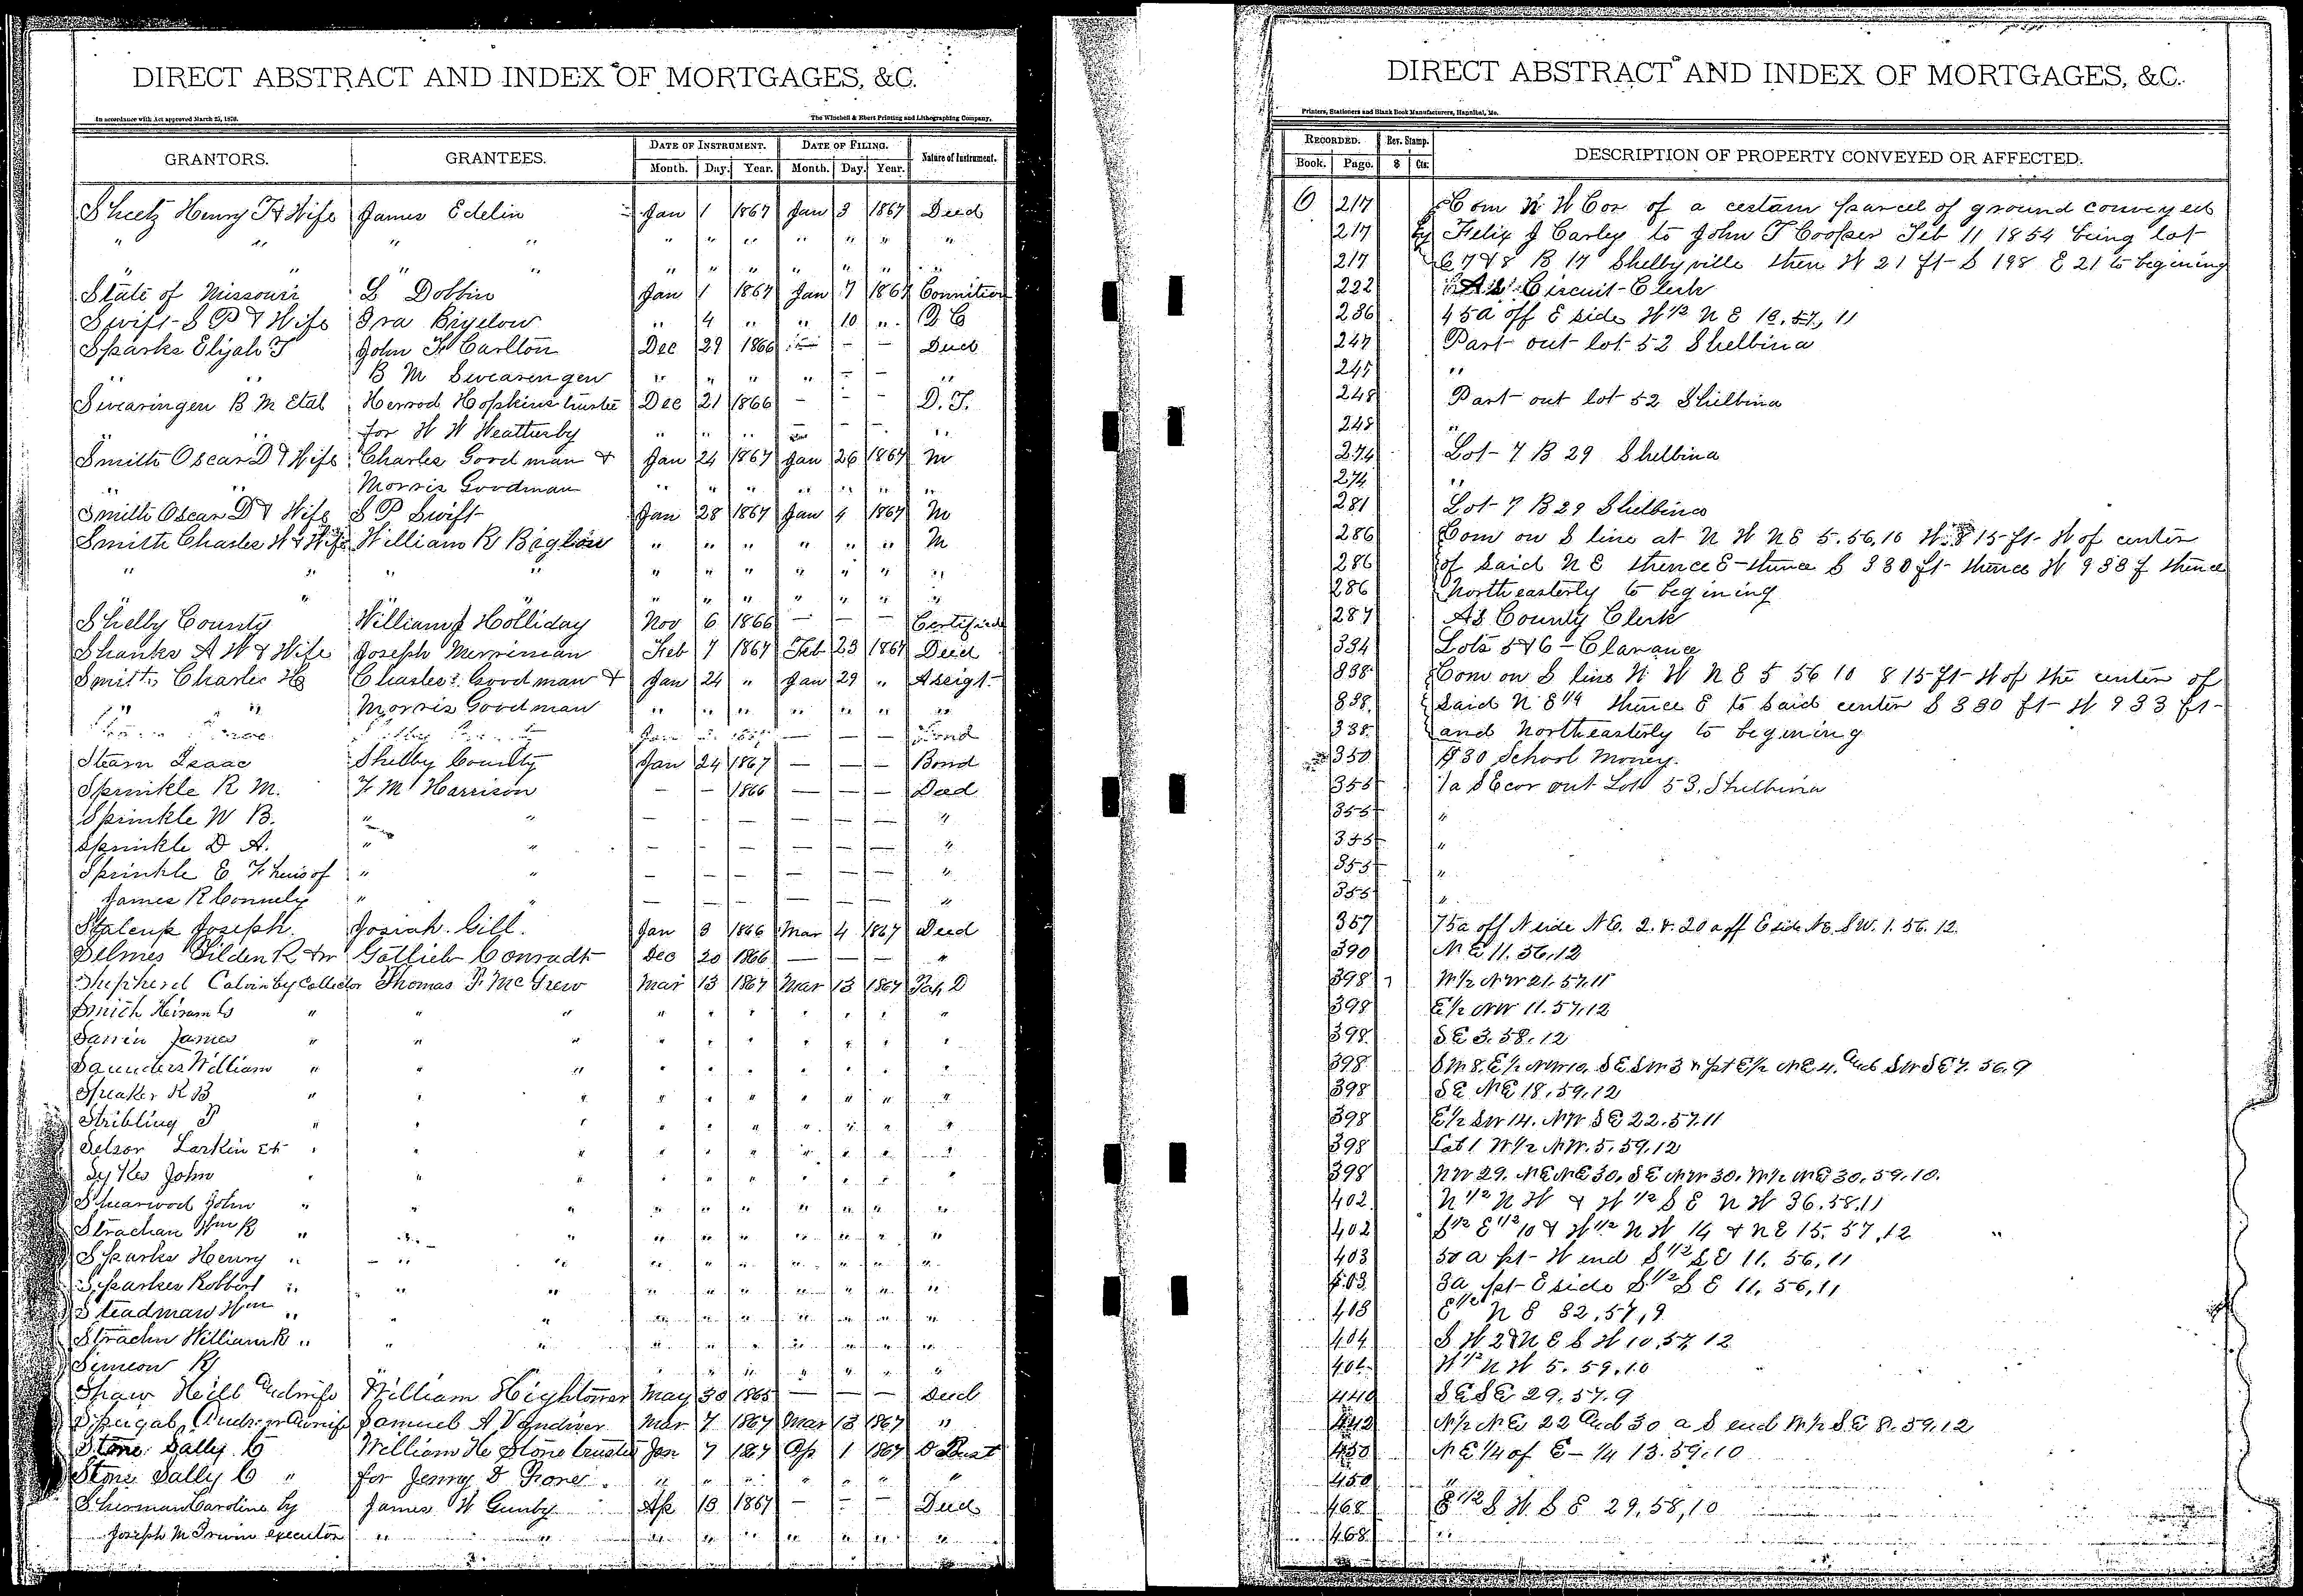 DIRECT ABSTRACT AND INDEX OF MORTGAGES, &C.
In accordance with Act approved March 25, 1870. The Winchell & Ebert Printing and Lithographing Company,
GRANTORS. GRANTEES. DATE OF INSTRUMENT. DATE OF FILING. Nature of Instrument.
Month. Day. Year. Month. Day. Year.
Sheetz Henry F & Wife James Edelin Jan 1 1867 Jan 3 1867 Deed
" " " " " " " " " " "
" " " " " " " " " " "
State of Missouri L Dobbin Jan 1 1867 Jan 7 1867
Swift S P & Wife Ira Bigelow " 4 " " 10 " Q C
Sparks Elijah T John F Carlton Dec 29 1866 — — — Deed
" " B M Swearengen " " " " — — "
Swearingen B M Etal Herrod Hopkins trustee Dec 21 1866 — — — D. T.
for W W Weatherby " " " — — — "
Smith Oscar D & Wife Charles Goodman & Jan 24 1867 Jan 26 1867 M
" " Morris Goodman " " " " " " "
Smith Oscar D & Wife S P Swift Jan 28 1867 Jan 4 1867 M
Smith Charles H & Wife William R Biglow " " " " " " M
" " " " " " " " " " "
" " " " " " " " " "
Shelby County William J Holliday Nov 6 1866 — — — Certificate
Shanks A W & Wife Joseph Merriman Feb 7 1867 Feb 23 1867 Deed
Smith Charles H Charles Goodman & Jan 24 " Jan 29 " Assigt.
" " Morris Goodman " " " " " " "
Jan — — — Bond
Stearn Isaac Shelby County Jan 24 1867 — — — Bond
Sprinkle R M. F M Harrison — — 1866 — — — Deed
Sprinkle W B. " " — — — — — — "
Sprinkle D A. " " — — — — — — "
Sprinkle E F heirs of " " — — — — — — "
James R Connely " " — — — — — — "
Stalcup Joseph. Josiah Gill. Jan 3 1866 Mar 4 1867 Deed
Selmes Tilden R Gotlieb Conradt Dec 20 1866 — — — "
Shepherd Calvin by Collector Thomas P. McGrew Mar 13 1867 Mar 13 1867 Tax D
Smith Heiram " " " " " " " " " "
James " " " " " " " " " "
Saunders William " " " " " " " " " "
Speaker R B " " " " " " " " " "
Stribling P " " " " " " " " " "
Selsor Larkin " " " " " " " " " "
Sykes John " " " " " " " " " "
Shearwood John " " " " " " " " " "
Strachan Wm R " " " " " " " " " "
Sparks Henry " " " " " " " " " "
Sparkes Robbert " " " " " " " " " "
Steadman Wm " " " " " " " " " "
Strachn William R " " " " " " " " " "
Simeon R " " " " " " " " "
Shaw Neill And wife William Hightower May 30 1865 — — — Deed
Samuel A Vandiver Mar 7 1867 Mar 13 1867 "
Stone Sally C William H Stone trustee Jan 7 1867 Ap 1 1867 D Trust
Stone Sally C " for Jenny D " " " " " " "
Sherman Caroline by James W Gunby Ap 13 1867 — — — Deed
Joseph M Irwin executor " " " " " " " " "
DIRECT ABSTRACT AND INDEX OF MORTGAGES, &C.
Printers, Stationers and Blank Book Manufacturers, Hannibal, Mo.
RECORDED. Rev. Stamp. DESCRIPTION OF PROPERTY CONVEYED OR AFFECTED.
Book. Page. $ Cts.
O 217 Com N W Cor of a certain parcel of ground conveyed
217 by Felix J Carley to John T Cooper Feb 11 1854 being lot
217 6 7 & 8 B 17 Shelbyville then W 21 ft S 198 E 21 to begining
222 As Circuit Clerk
236 45a off E side W 1/2 N E 18, 57, 11
247 Part out lot 52 Shelbina
247 "
248 Part out lot 52 Shelbina
248 "
274 Lot 7 B 29 Shelbina
274 "
281 Lot 7 B 29 Shelbina
286 Com on S line at N W N E 5. 56. 10 W. 815 ft W of center
286 of said N E thence E thence S 330 ft thence W 933 f thence
286 Northeasterly to begining
287 As County Clerk
334 Lots 5 & 6 Clarance
338 Com on S line N W N E 5 56 10 815 ft W of the center of
338 Said N E 1/4 thence E to said center S 330 ft W 933 ft
338 and northeasterly to begining
350 $30 School Money.
355 1a S E cor out Lot 53. Shelbina
355 "
355 "
355 "
355 "
357 75a off N side N E. 2. & 20a off E side NE SW. 1. 56. 12.
390 N E 11. 56, 12
398 W 1/2 NW 21. 57. 11
398 E 1/2 NW 11. 57. 12
398 S E 3. 58. 12
398 And SW SE 7. 56. 9
398 SE NE 18, 59, 12
398 E 1/2 SW 14. NW SE 22. 57. 11
398 Lot 1 W 1/2 NW. 5. 59. 12
398 NW 29. NE NE 30, SE NW 30. W 1/2 NE 30. 59. 10.
402 N 1/2 N W & W 1/2 S E N W 36. 58. 11
402 S 1/2 E 1/2 10 & W 1/2 N W 14 & N E 15. 57, 12 "
403 50 a pt W end S 1/2 S E 11. 56, 11
403 3a pt E side S 1/2 S E 11, 56, 11
403 E 1/2 N E 32, 57, 9
404 S W 2 & N E S W 10, 57, 12
404 W 1/2 N W 5. 59. 10
440 SE SE 29. 57. 9
442 N 1/2 NE 22 And 30 a S end W 1/2 S E 8. 59. 12
450 N E 1/4 of E — 1/4 13. 59. 10
450 "
468 E 1/2 S W S E 29, 58, 10
468 "